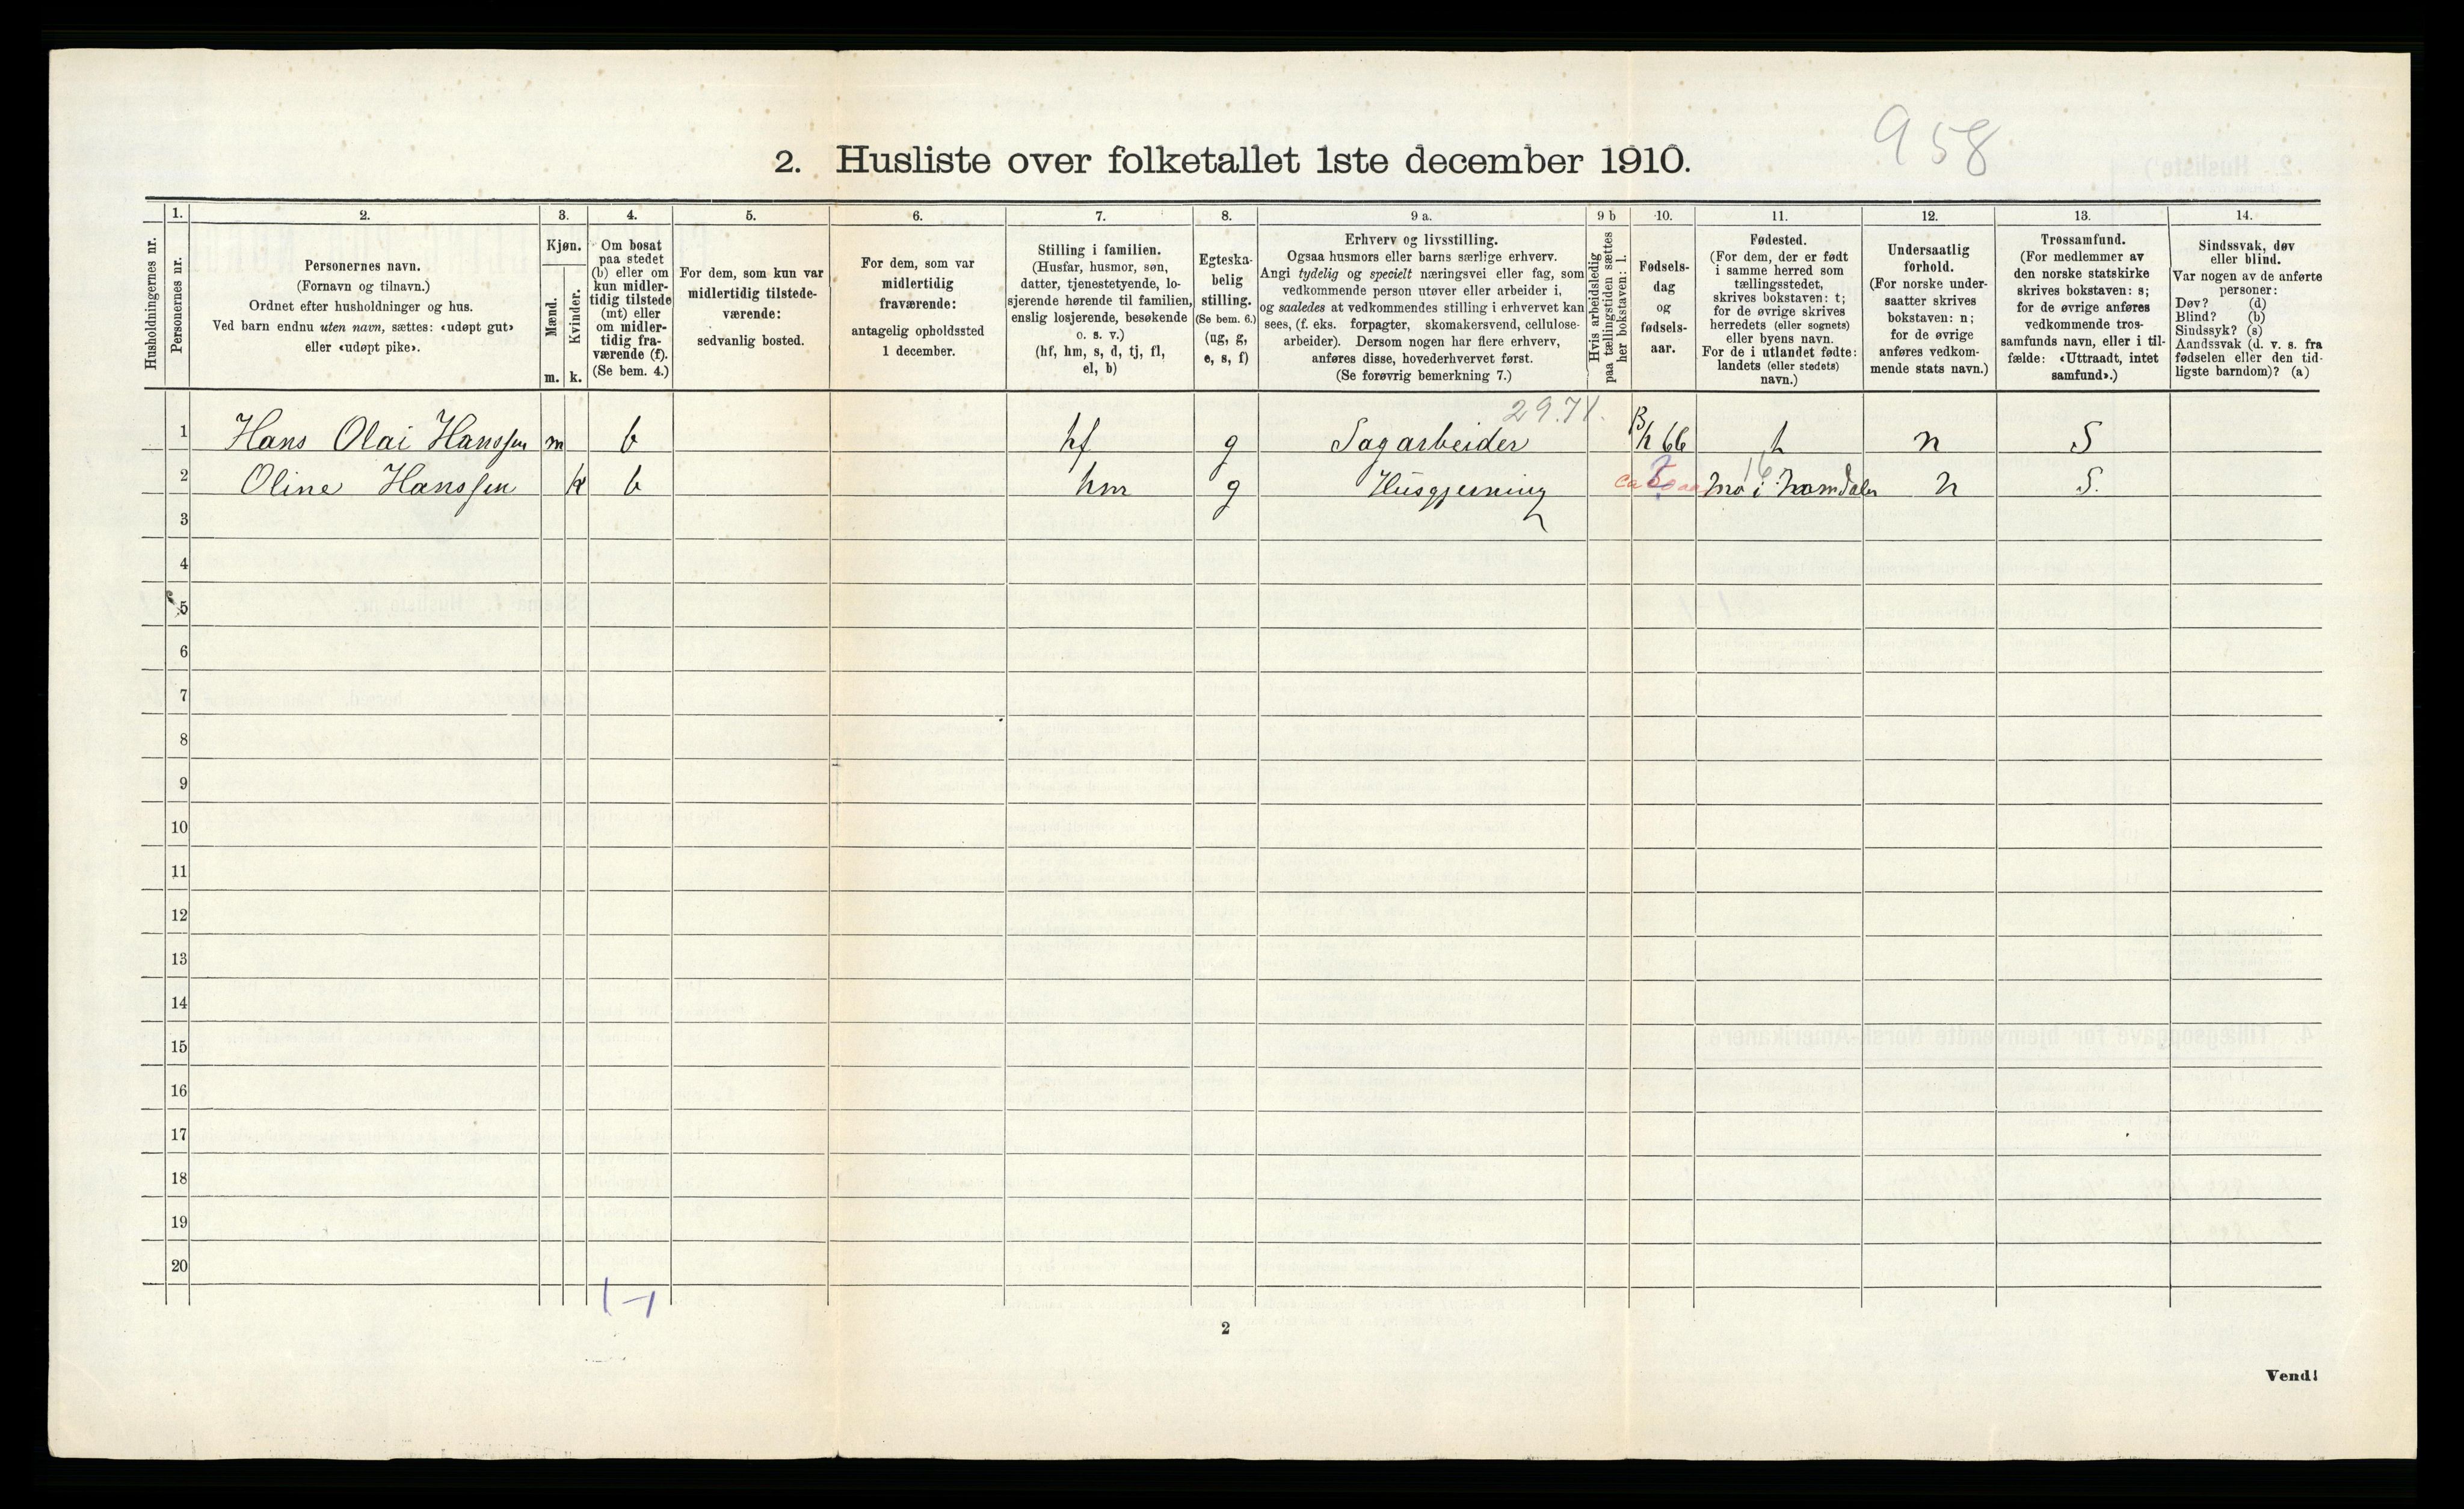 958
2. Husliste over folketallet 1ste december 1910.
Husholdningernes nr.
1.
Personernes nr.
2.
Personernes navn.
(Fornavn og tilnavn.)
Ordnet efter husholdninger og hus.
Ved barn endnu uten navn, sættes: «udøpt gut»
eller «udøpt pike».
3.
Kjøn.
Mænd.
Kvinder.
m. k.
4.
Om bosat
paa stedet
(b) eller om
kun midler-
tidig tilstede
(mt) eller
om midler-
tidig fra-
værende (f).
(Se bem. 4.)
5.
For dem, som kun var
midlertidig tilstede-
værende:
sedvanlig bosted.
6.
For dem, som var
midlertidig
fraværende:
antagelig opholdssted
1 december.
7.
Stilling i familien.
(Husfar, husmor, søn,
datter, tjenestetyende, lo-
sjerende hørende til familien,
enslig losjerende, besøkende
o. s. v.)
(hf, hm, s, d, tj, fl,
el, b)
8.
Egteska-
belig
stilling.
(Se bem. 6.)
(ug, g,
e, s, f)
9 a.
Erhverv og livsstilling.
Ogsaa husmors eller barns særlige erhverv.
Angi tydelig og specielt næringsvei eller fag, som
vedkommende person utøver eller arbeider i,
og saaledes at vedkommendes stilling i erhvervet kan
sees, (f. eks. forpagter, skomakersvend, cellulose-
arbeider). Dersom nogen har flere erhverv,
anføres disse, hovederhvervet først.
(Se forøvrig bemerkning 7.)
9 b
Hvis arbeidsledig
paa tællingstiden sættes
her bokstaven: l.
10.
Fødsels-
dag
og
fødsels-
aar.
11.
Fødested.
(For dem, der er født
i samme herred som
tællingsstedet,
skrives bokstaven: t;
for de øvrige skrives
herredets (eller sognets)
eller byens navn.
For de i utlandet fødte:
landets (eller stedets)
navn.)
12.
Undersaatlig
forhold.
(For norske under-
saatter skrives
bokstaven: n;
for de øvrige
anføres vedkom-
mende stats navn.)
13.
Trossamfund.
(For medlemmer av
den norske statskirke
skrives bokstaven: s;
for de øvrige anføres
vedkommende tros-
samfunds navn, eller i til-
fælde: «Uttraadt, intet
samfund».)
14.
Sindssvak, døv
eller blind.
Var nogen av de anførte
personer:
Døv? (d)
Blind? (b)
Sindssyk? (s)
Aandssvak (d. v. s. fra
fødselen eller den tid-
ligste barndom)? (a)
29.71.
1 Hans Olai Hanssen m b hf g Sagarbeider 66 t n S
16
2 Oline Hanssen k b hm g Husgjerning ca Mo i Namdalen n S.
3
4
5
6
7
8
9
10
11
12
13
14
15
16
17
18
19
20
1-1
2
Vend!